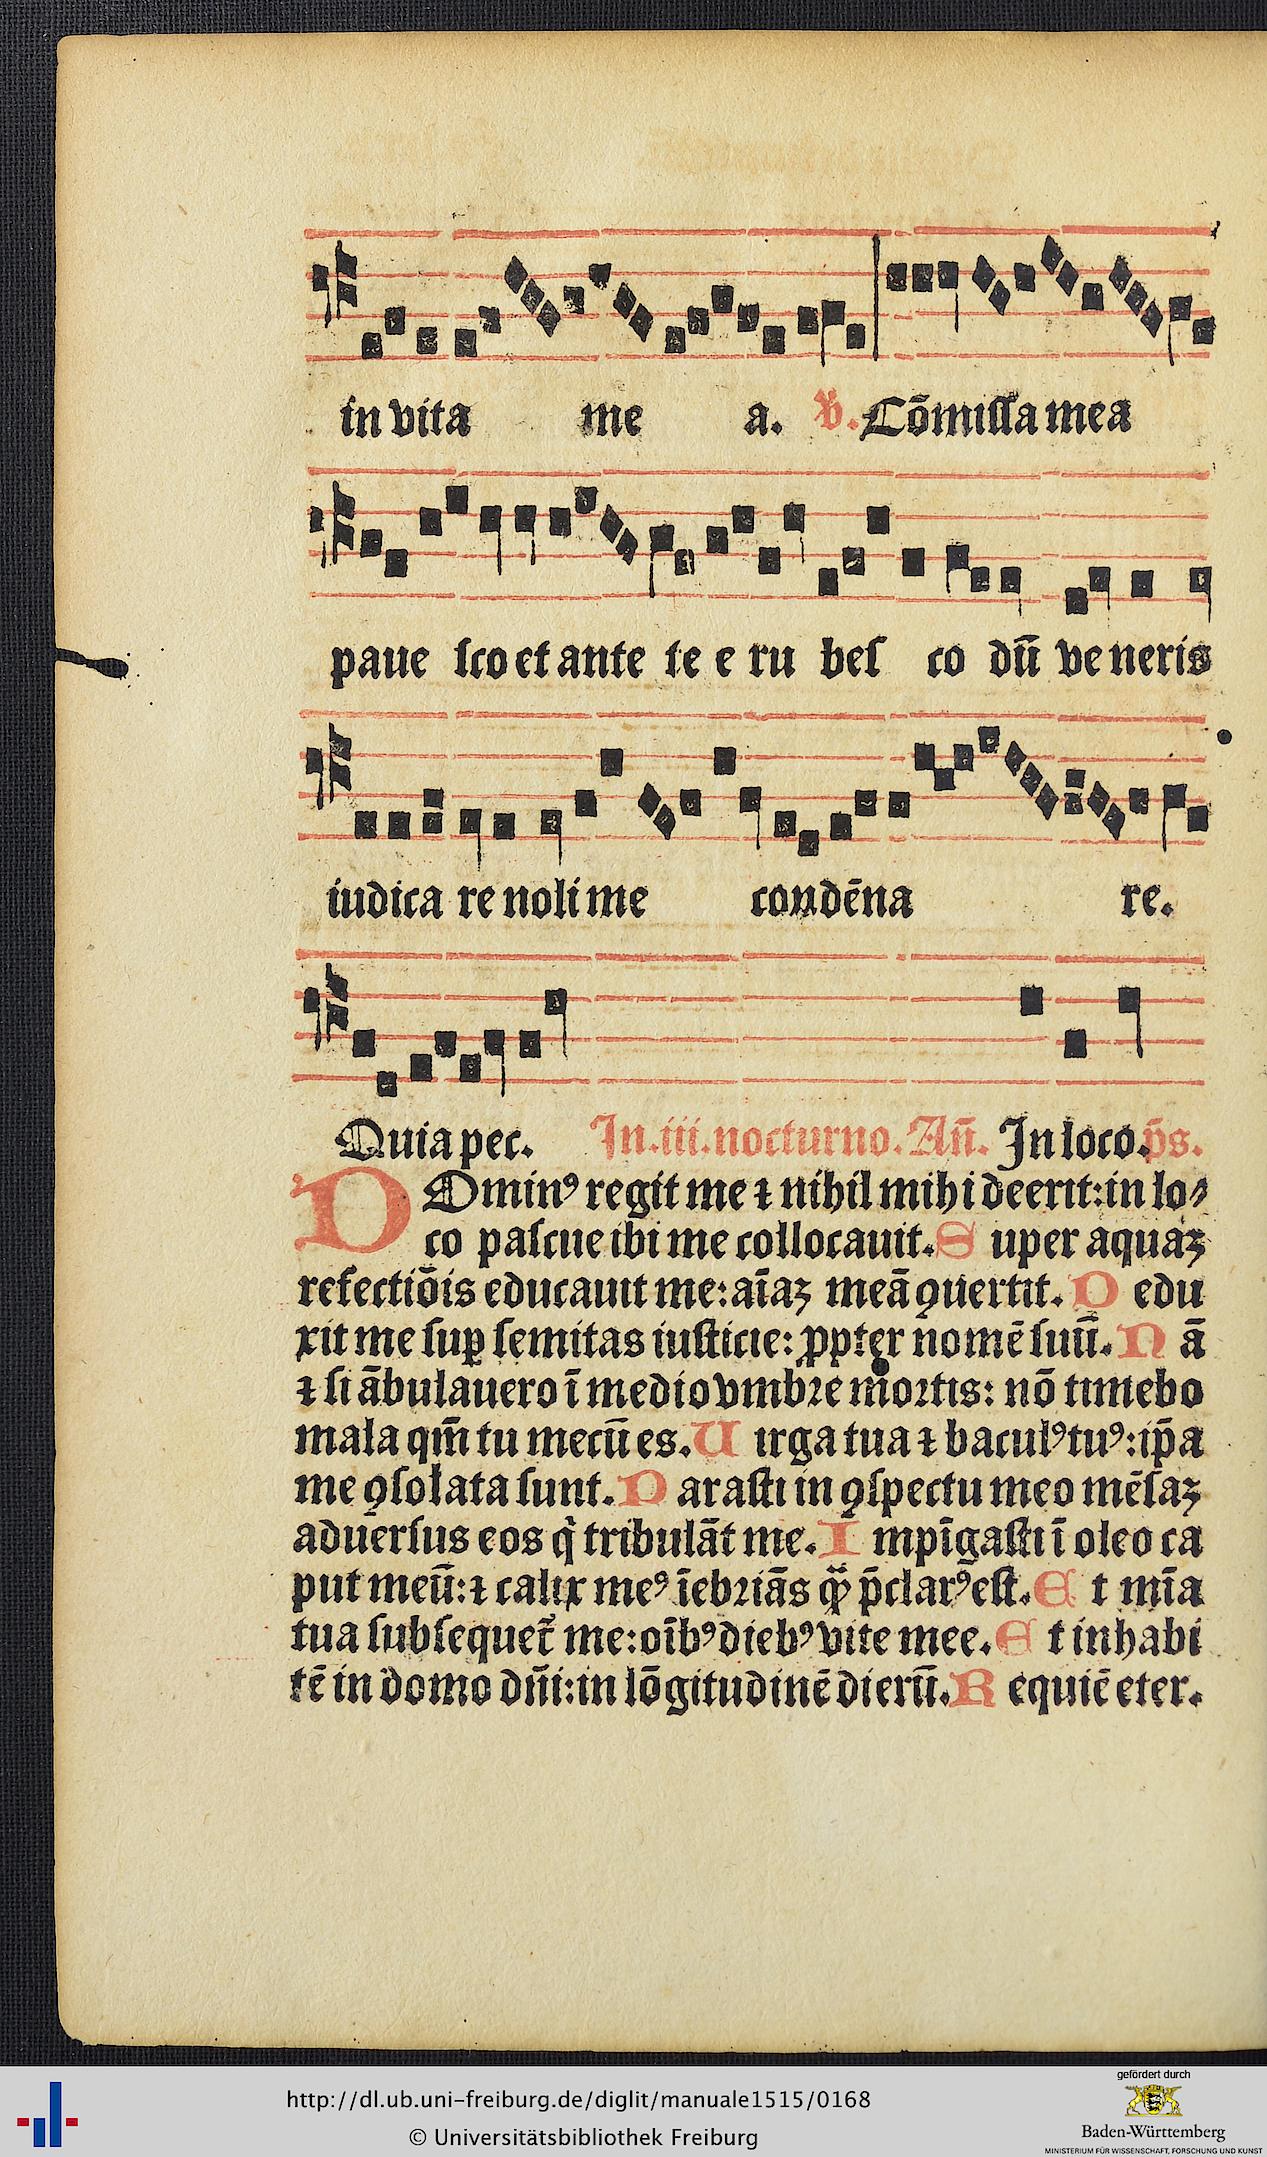 in vita me a. ℣. Cõmiſſa mea
paue ſco et ante te e ru beſ co dũ ve neris
iudica re noli me condẽna re.
Quia pec. In.iii.nocturno. Añ. In loco. p̄s.
DOminꝰ regit me ⁊ nihil mihi deerit: in lo⸗
co paſcue ibi me collocauit. S uper aquaꝫ
refectiõis educauit me: aīaꝫ meã ꝯuertit. D edu
xit me ſuꝑ ſemitas iuſticie: ꝓpter nomẽ ſuũ. N ã
⁊ ſi ãbulauero ī medio vmbꝛe moꝛtis: nõ timebo
mala qm̄ tu mecũ es. U irga tua ⁊ baculꝰ tuꝰ: ip̄a
me ꝯſolata ſunt. P araſti in ꝯſpectu meo mẽſaꝫ
aduerſus eos q̇ tribulãt me. I mpīgaſti ī oleo ca
put meũ: ⁊ calix meꝰ īebꝛiãs q̃ȝ p̄clarꝰ eſt. E t mīa
tua ſubſequet᷑ me: oībꝰ diebꝰ vite mee. E t inhabi
tẽ in domo dñi: in lõgitudinẽ dierũ. R equiẽ eter.
http://dl.ub.uni-freiburg.de/diglit/manuale1515/0168
© Universitätsbibliothek Freiburg
gefördert durch
Baden-Württemberg
MINISTERIUM FÜR WISSENSCHAFT, FORSCHUNG UND KUNST